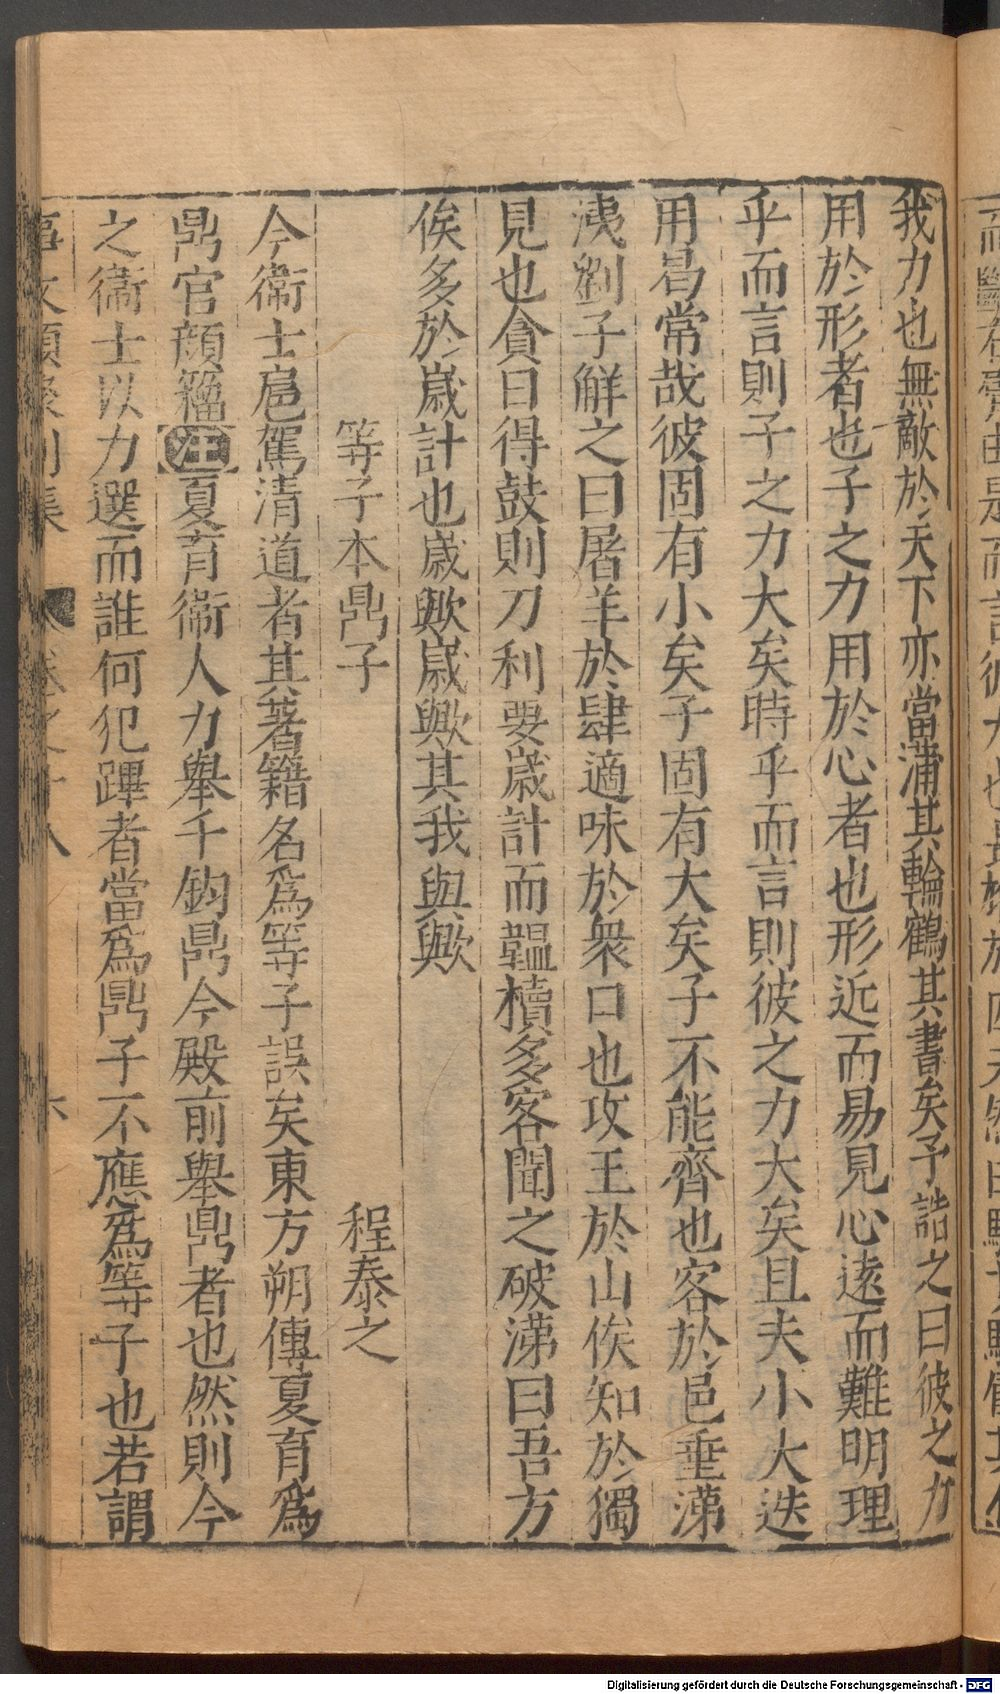 我力也無敵於天下亦當蒲其輪鶴其書矣予詰之曰彼之力
用於形者也子之力用於心者也形近而易見心遠而難明理
乎而言則子之力大矣時乎而言則彼之力大矣且夫小大迭
用曷常哉彼固有小矣子固有大矣子不能齊也客於邑垂涕
洟劉子解之曰屠羊於肆適味於衆口也攻王於山俟知於獨
見也貪日得鼓則刀利要歲計而韞櫝多客聞之破涕曰吾方
俟多於歲計也歲歟歲歟其我與歟
等子本鼎子 程泰之
今衛士扈駕清道者其著籍名爲等子誤矣東方朔傳夏育爲
鼎官顔籀注夏育衛人力舉千鈞鼎今殿前舉鼎者也然則今
之衛士以力選而誰何犯蹕者當爲鼎子不應爲等子也若謂
事文類聚別集 卷之十八 六
Digitalisierung gefördert durch die Deutsche Forschungsgemeinschaft - DFG